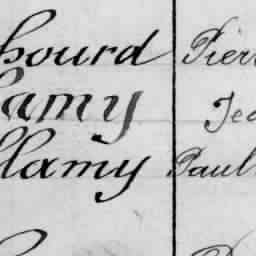 hourd Pier
amy Jea
lamy Paul